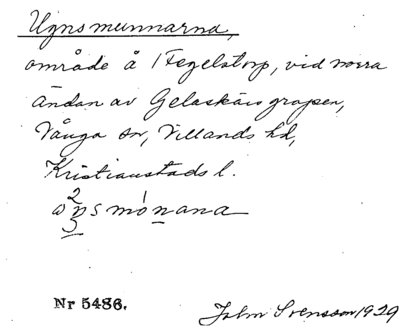 Ugnsmunnarna,
område å 1 Tegelstorp, vid norra
ändan av Gelaskärsgropen,
Vånga sn, Villands hd,
Kristianstads l.
Nr 5486.
John Svensson 1929